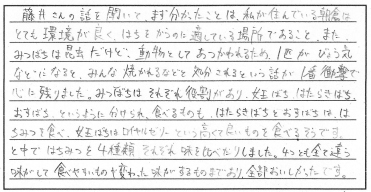 藤井さんの話を聞いて、まず分かったことは、私が住んでいる朝倉は
とても環境が良く、はちをかうのに適している場所であること。また、
みつばちは昆虫だけど、動物としてあつかわれるため、1匹がびょうき
などになると、みんな焼かれるなどと処分されるという話が1番衝撃で
心に残りました。みつばちはそれぞれ役割があり、女王ばち、はたらきばち、
おすばち、というように分けられ、食べるものも、はたらきばちとおすばちは、は
ちみつを食べ、女王ばちはロイヤルゼリーという高くて良いものを食べるそうです。
と中ではちみつを4種類それぞれ味を比べたりしました。4つとも全て違う
味がして食べやすいものや変わった味がするものまであり、全部おいしかったです。